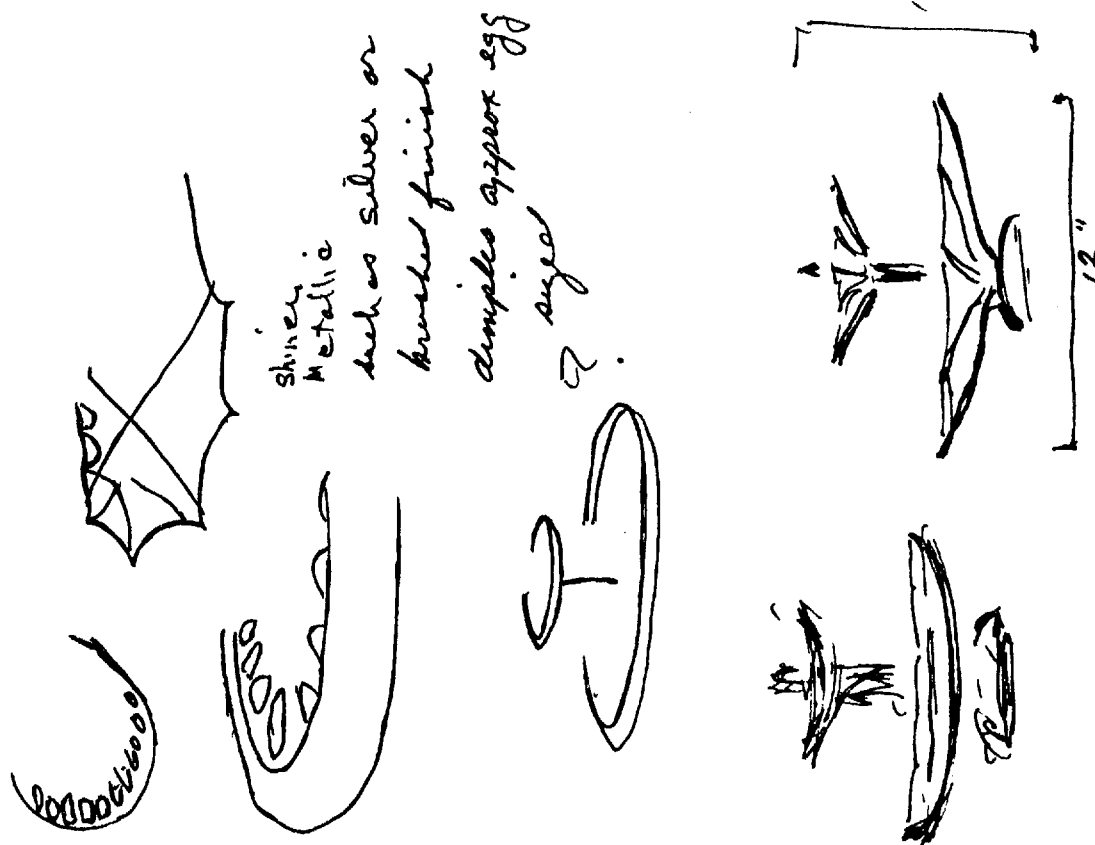 Shiney
Metallic
such as silver or
brushed finish
dimples approx egg
sized
?
12"